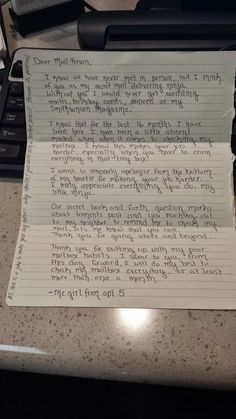 Dear Mail Person,
I know we have never met in person, but I think
of you as my secret mail delivering ninja.
Without you I would never get wedding
invites, birthday cards, coupons, or my
Smithsonian Magazine.
I know that for the last 16 months I have
been here I have been a little absent
minded when it comes to checking my
mailbox. I know this makes your job
harder, especially when you have to cram
everything in that tiny box!
I want to sincerely apologize from the bottom
of my heart for making your job harder.
I truly appreciate everything you do, my
little ninja.
Our secret back and forth question marks
about tenants past and you reaching out
to my neighbor to remind me to check my
mail, lets me know that you care.
Thank you for going above and beyond.
Thank you for putting up with my poor
mailbox habits. I swear to you, from
this day forward, I will do my best to
check my mailbox everyday. Or at least
more than once a month.
-The girl from apt 5